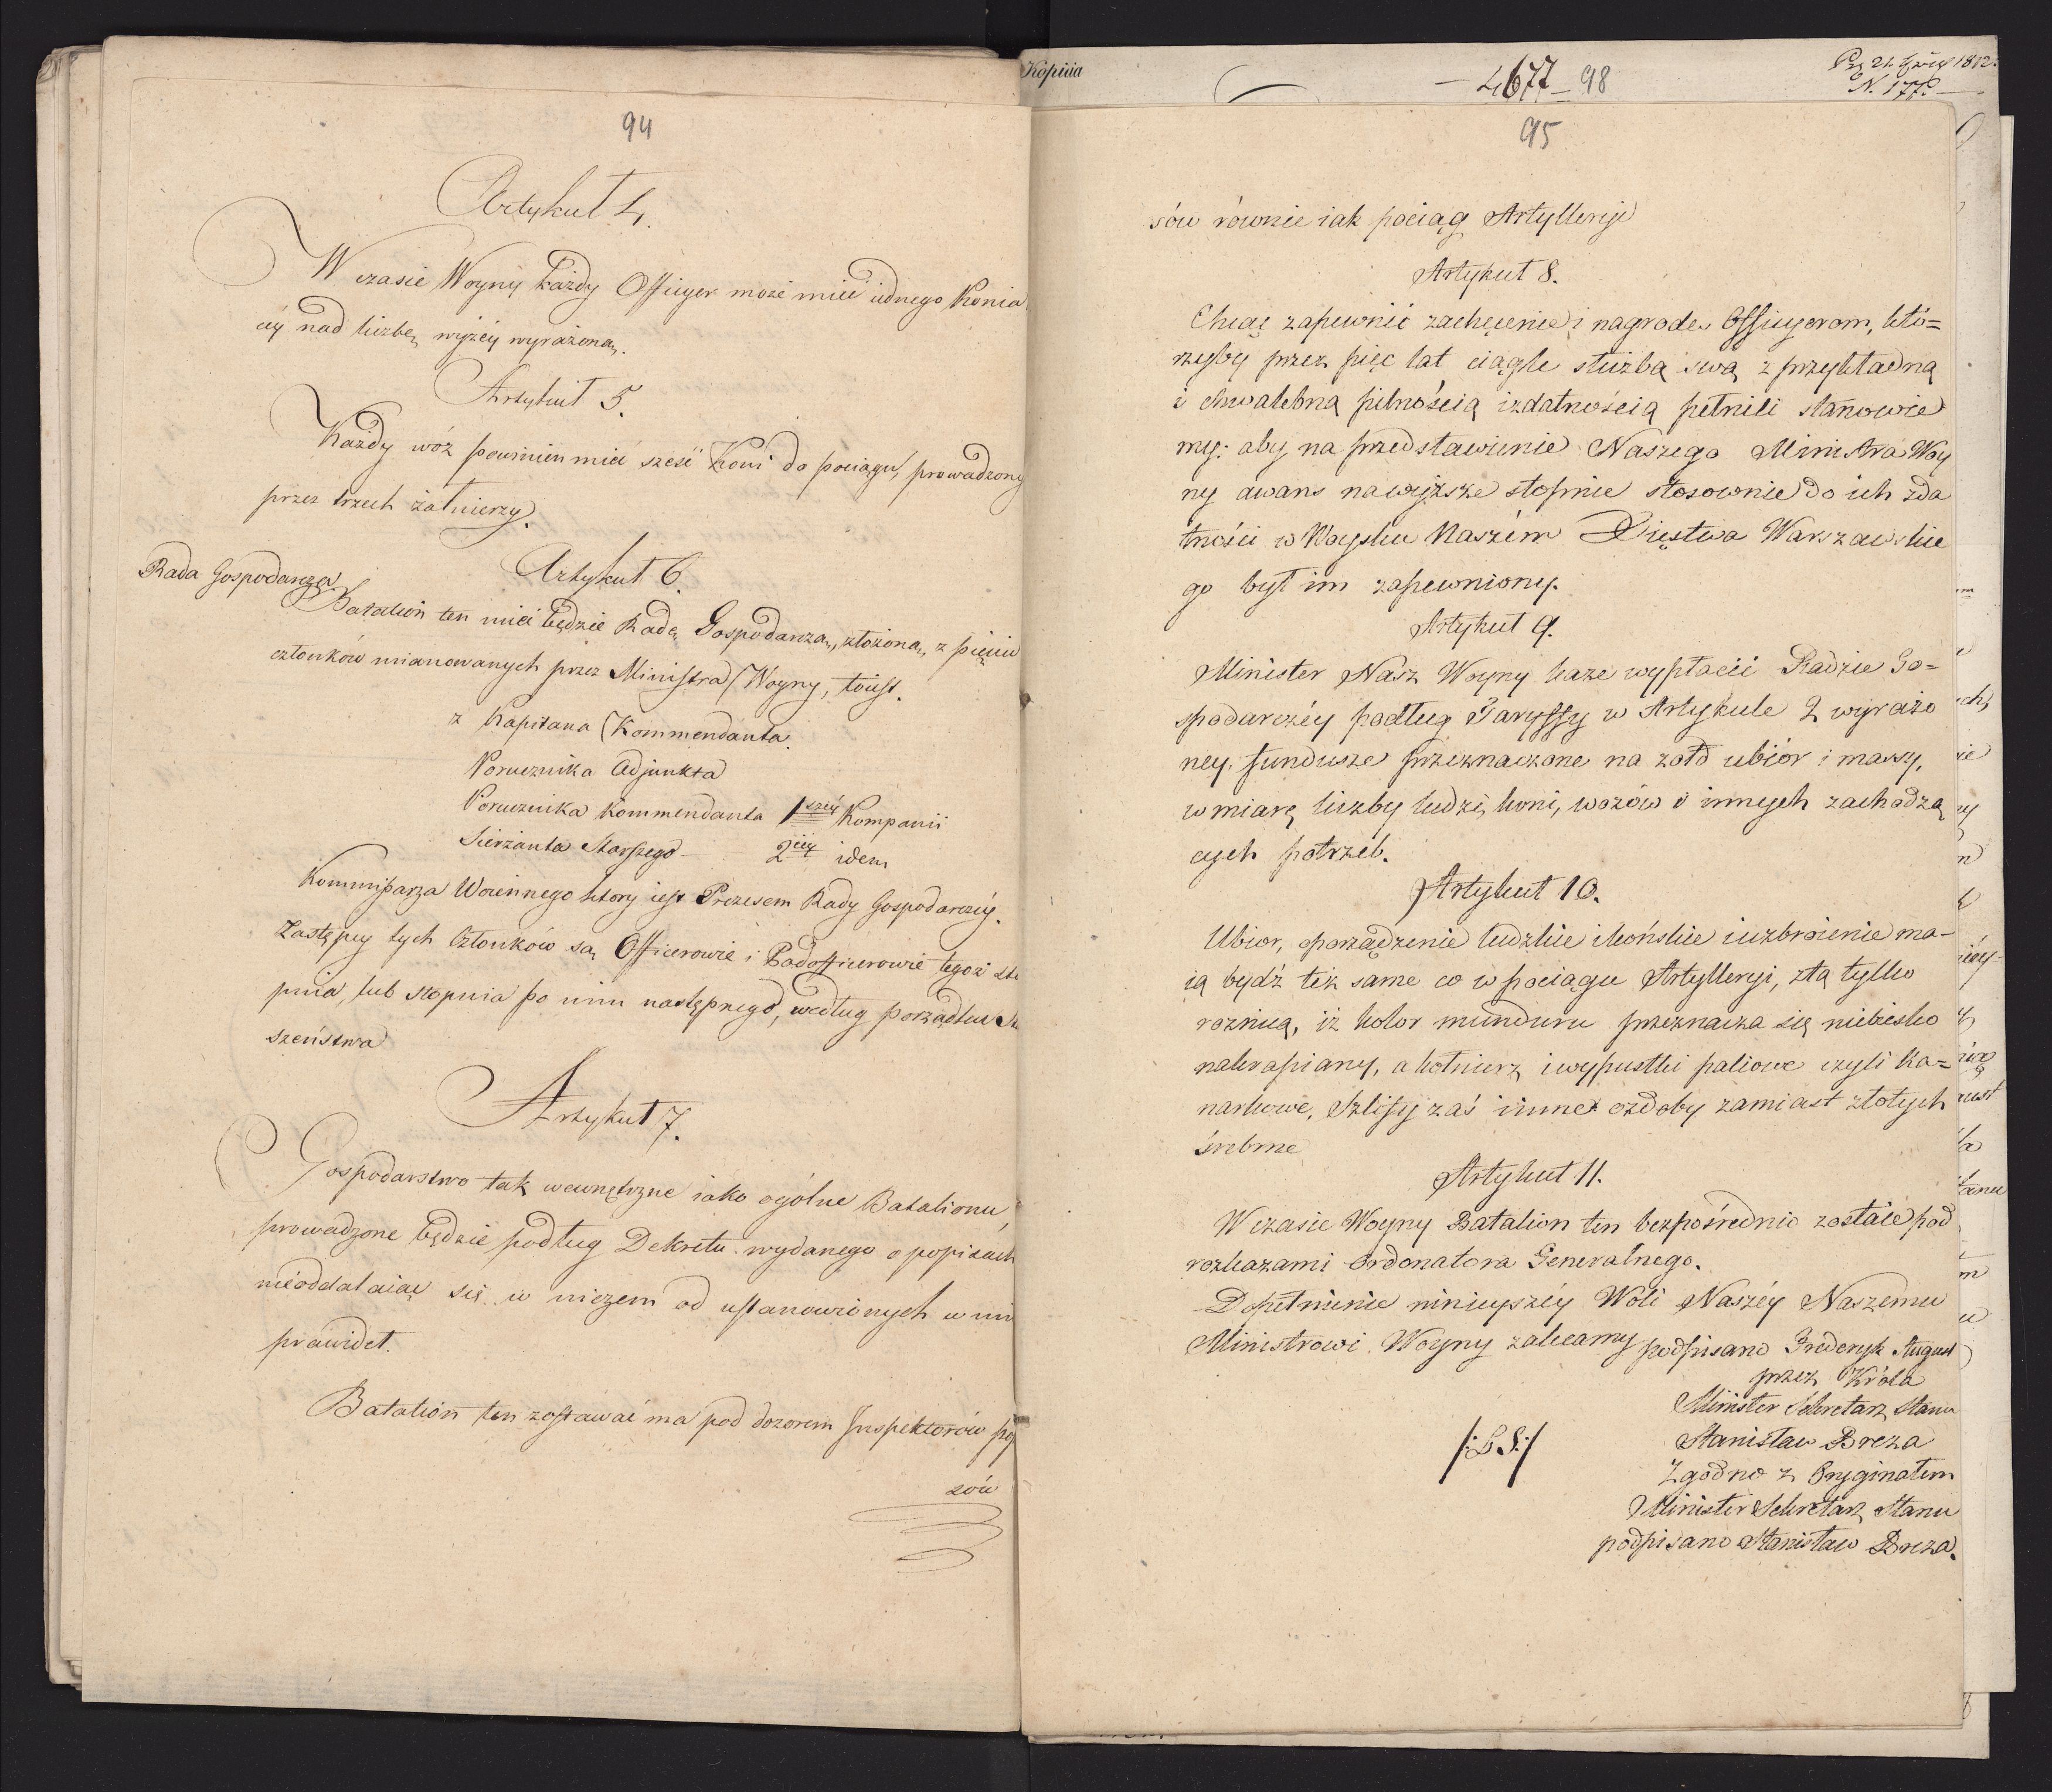 94
Artykuł 4.
W czasie Woyny każdy Officyer może mieć iednego Konia
céy nad liczbę wyżéy wyrażoną.
Artykuł 5.
Każdy wóz powinien mieć sześć Koni do pociągu, prowadzony
przez trzech żołnierzy.
Rada Gospodarcza
Artykuł 6.
Batalion ten mieć będzie Radę Gospodarczą, złożoną z pięciu
członków mianowanych przez Ministra Woyny, toiest.
z Kapitana Kommendanta.
Porucznika Adjunkta
Porucznika Kommendanta 1széy Kompanii
Sierżanta Starszego - 2iéy idem
Kommissarza Woiennego ktory iest Prezesem Rady Gospodarczéy.
Zastępcy tych Członków są Officerowie i Podofficerowie tegoż sto
pnia, lub stopnia po nim następnego, według porządku Sta
szeństwa
Artykuł 7.
Gospodarstwo tak wewnętrzne iako ogólne Batalionu,
prowadzone będzie podług Dekretu wydanego o popisach
nieoddalaiąc się w niczem od ustanowionych w nim
prawideł.
Batalion ten zostawać ma pod dozorem Inspektorów po
sów
Kopiia
4677 98
21. 1812.
N. 177.
95
sów równie iak pociąg Artylleryi
Artykuł 8.
Chcąc zapewnić zachęcenie i nagrodę Officyerom, któ=
rzyby przez pięć lat ciągle służbą swą z przykładną
i chwalebną pilnością i zdatnością pełnili stanowie
my: aby na przedstawienie Naszego Ministra Woy
ny awans na wyższe stopnie stosownie do ich zda
tności w Woysku Naszém Xięstwa Warszawskie
go był im zapewniony.
Artykuł 9.
Minister Nasz Woyny każe wypłacić Radzie Go=
spodarczéy podług Taryffy w Artykule 2 wyrażo
ney fundusze przeznaczone na żołd ubiór i massy,
w miarę liczby ludzi, koni, wozów i innych zachodzą
cych potrzeb.
Artykuł 10.
Ubior, oporządzenie ludzkie i końskie i uzbroienie ma-
ią bydź téż same co w pociągu Artylleryi, z tą tylko
roznicą, iż kolor munduru przeznacza się niebiesko
nakrapiany, a kołnierz i wypustki paliowe czyli ka=
narkowe, Szlify zaś i inne ozdoby zamiast złotych
śrebrne
Artykuł 11.
W czasie Woyny Batalion ten bezpośrednio zostaie pod
rozkazami Ordonatora Generalnego.
Dopełnienie ninieyszéy Woli Naszéy Naszemu
Ministrowi Woyny zalecamy podpisano Frederyk August
przez Króla
Minister Sekretarz Stanu
/:LS:/
Stanisław Breza
Zgodno z Oryginałem
Minister Sekretarz Stanu
podpisano Stanisław Breza.